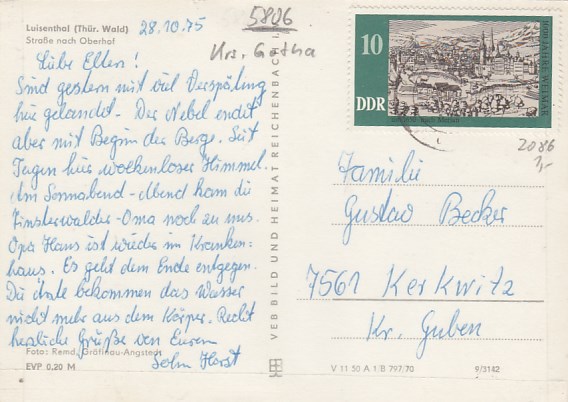 Luisenthal (Thür. Wald)
Straße nach Oberhof
28.10.75
5806
Krs. Gotha
Liebe Eltern!
Sind gestern mit viel Verspätung
hier gelandet. Der Nebel endet
aber mit Beginn der Berge. Seit
Tagen hier wolkenloser Himmel.
Am Sonnabend-Abend kam die
Finsterwalder-Oma noch zu uns.
Opa Hans ist wieder im Kranken-
haus. Es geht dem Ende entgegen.
Die Ärzte bekommen das Wasser
nicht mehr aus dem Körper. Recht
herzliche Grüße von Eurem
Sohn Horst
Foto: Remd, Gräfinau-Angstedt
EVP 0,20 M
VEB BILD UND HEIMAT REICHENBACH I.
10
DDR
1000 JAHRE WEIMAR
2086
1,-
Familie
Gustav Becker
7561 Kerkwitz
Kr. Guben
V 11 50 A 1/B 797/70
9/3142